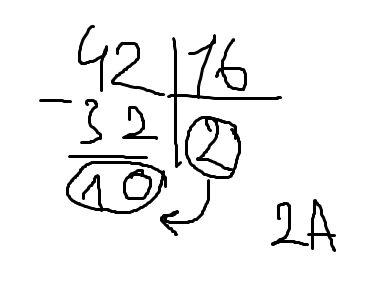 42 16
- 32 2
10
2A